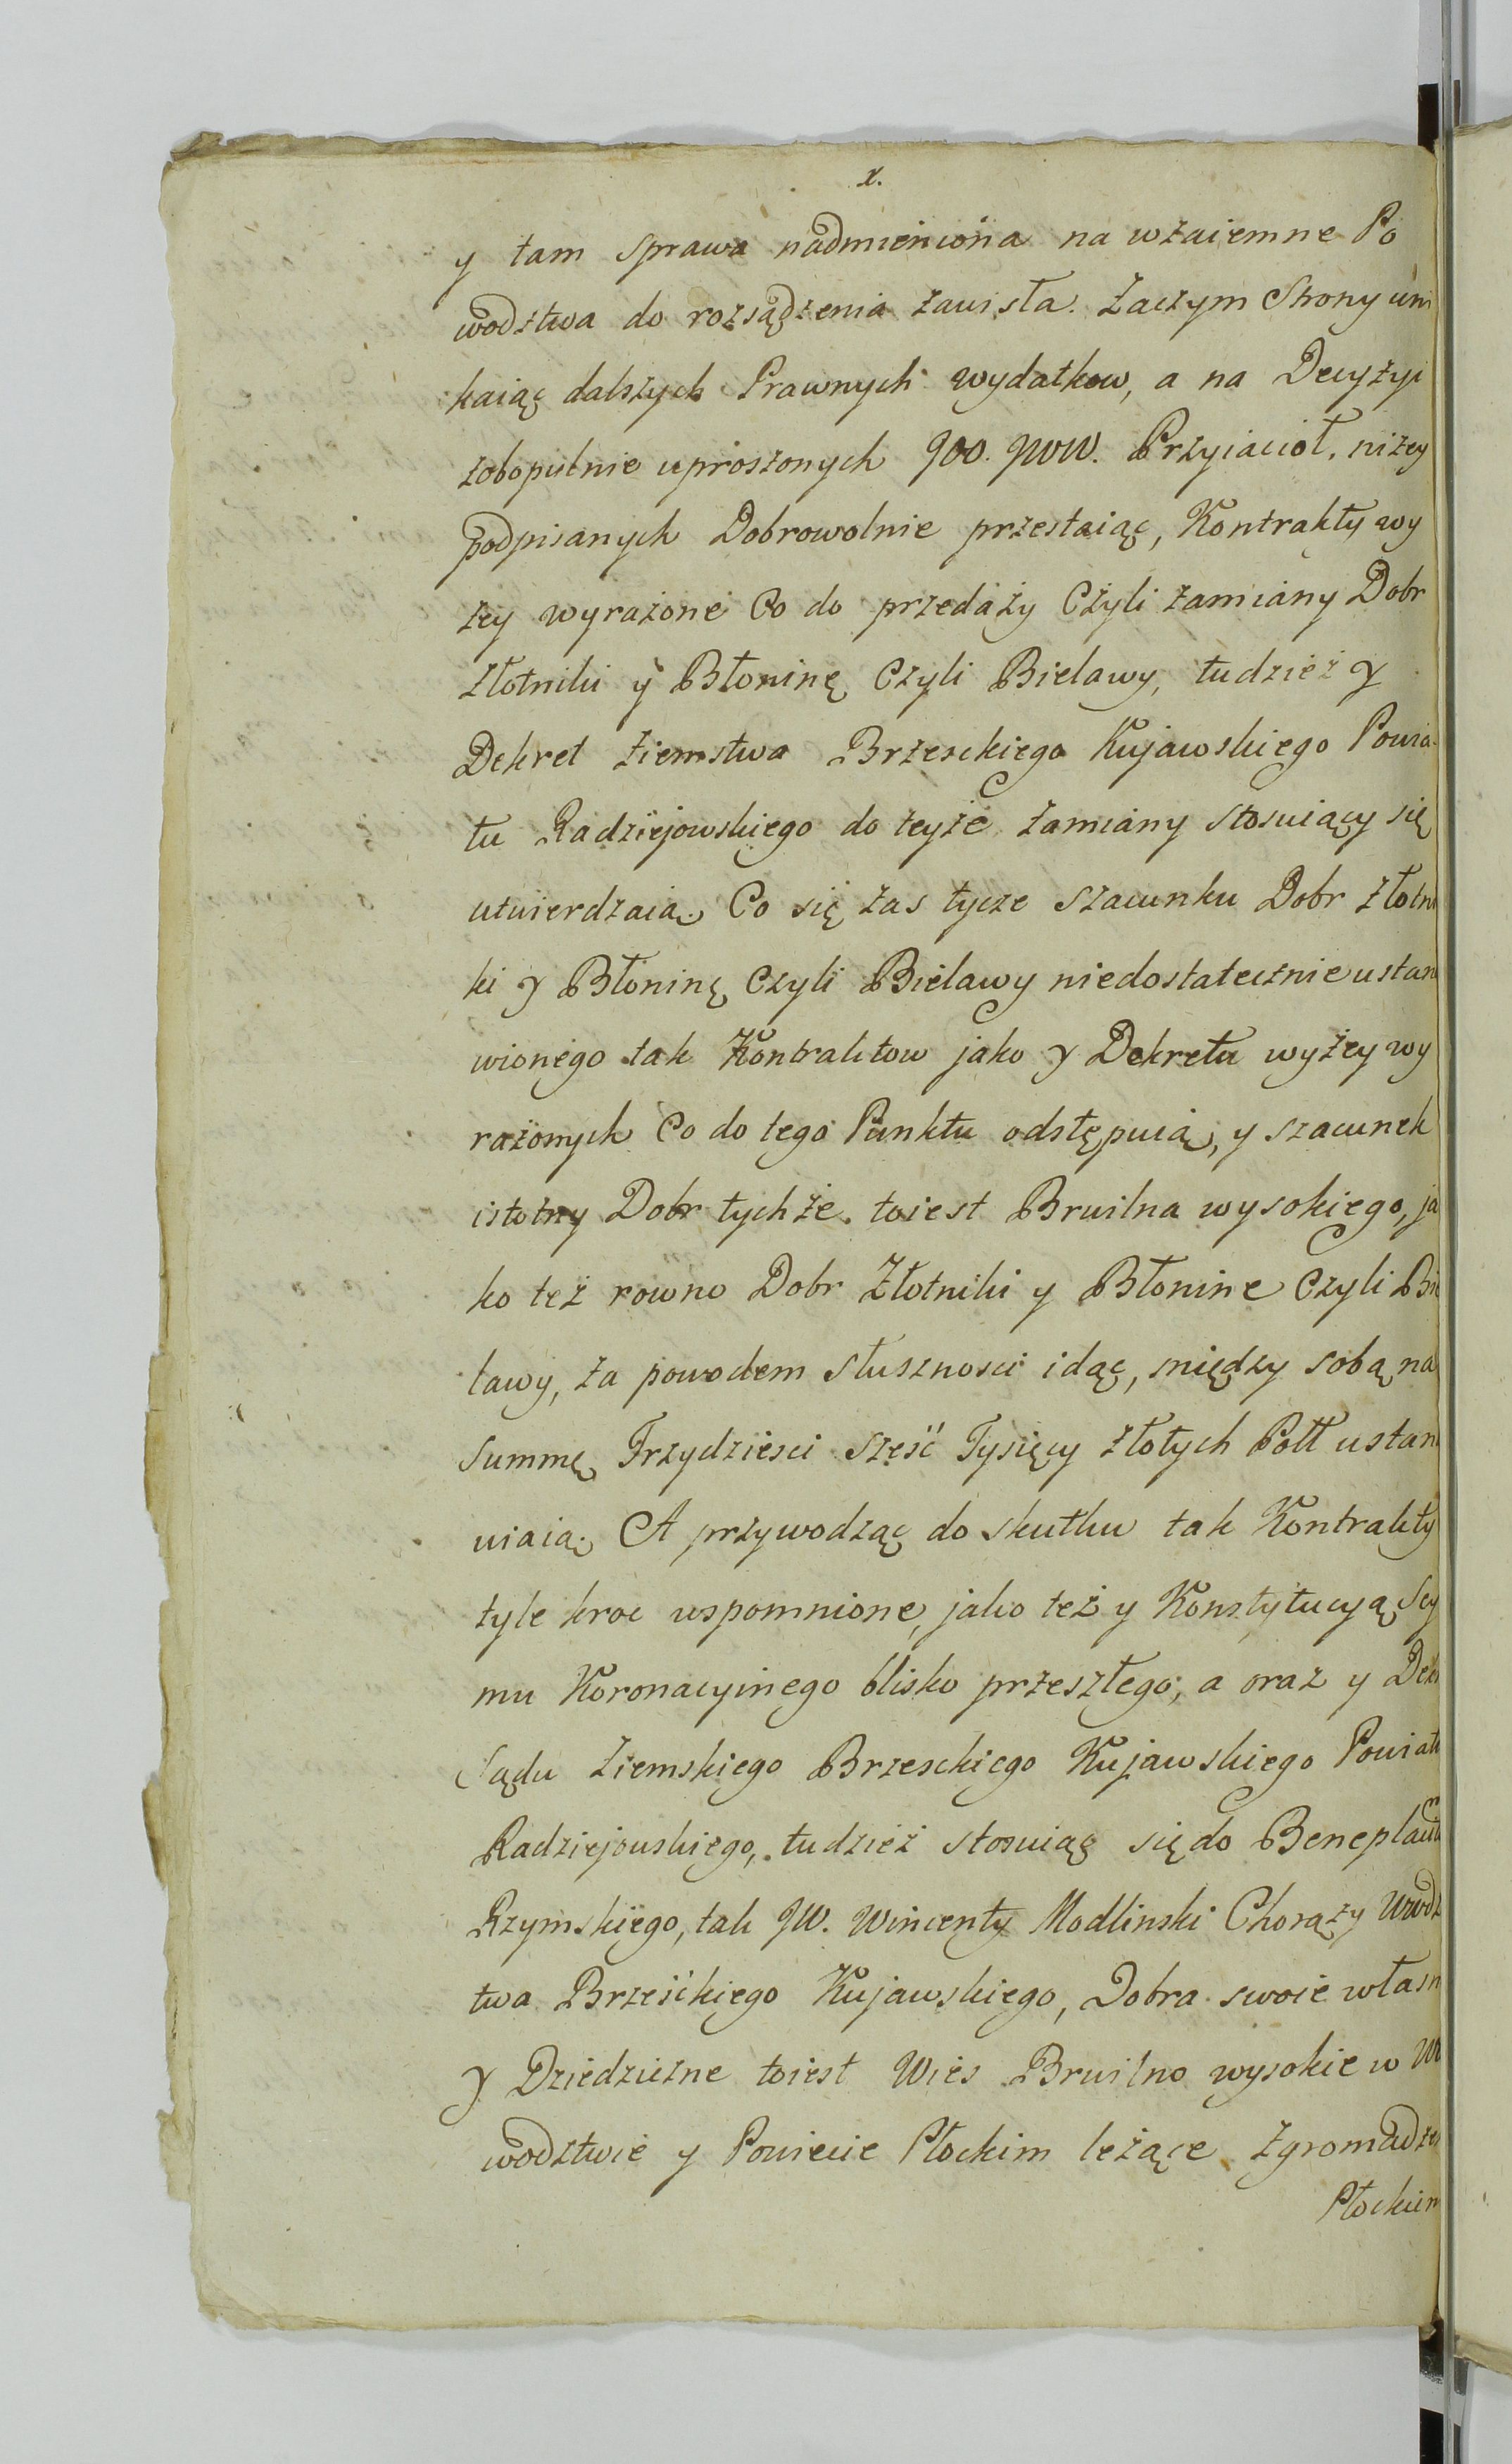 x.
y tam sprawa nadmieniona na wzaiemne Po
wodztwa do rozsądzenia zawisła. Zaczym Strony uni
kaiąc dalszych Prawnych wydatkow, a na Decyzyi
zobopulnie uproszonych JOO. JWW. Przyiacioł, niżey
podpisanych Dobrowolnie przestaiąc, Kontrakty wy
żey wyrażone Co do przedaży Czyli zamiany Dobr
Złotniki y Błoninę Czyli Bielawy, tudzież y
Dekret Ziemstwa Brzesckiego Kujawskiego Powia-
tu Radziejowskiego do teyże zamiany stosuiący się
utwierdzaią. Co się zas tycze szacunku Dobr Złotni
ki y Błoninę Czyli Bielawy niedostatecznie ustan
wionego tak Kontraktow jako y Dekretu wyżey wy
rażonych Co do tego Punktu odstępuią, y szacunek
istotny Dobr tychże. toiest Brwilna wysokiego, ja
ko też rowno Dobr Złotniki y Błonine Czyli Bie
lawy, za powodem słusznosci idąc, między sobą na
Summę Trzydziesci Szesć Tysięcy Złotych Poll ustan
wiaią. A przywodząc do skutku tak Kontrakty
tyle kroc wspomnione, jako też y Konstytucyą Sey
mu Koronacyinego blisko przeszłego, a oraz y Dek
Sądu Ziemskiego Brzesckiego Kujawskiego Powiatu
Radziejowskiego, tudzież stosuiąc się do Beneplacit
Rzymskiego, tak JW. Wincenty Modlinski Chorąży Wwodz
twa Brześckiego Kujawskiego, Dobra swoie własn
y Dziedziczne toiest Wies Brwilno wysokie w Wo
wodztwie y Powiecie Płockim leżące Zgromadze
Płockim